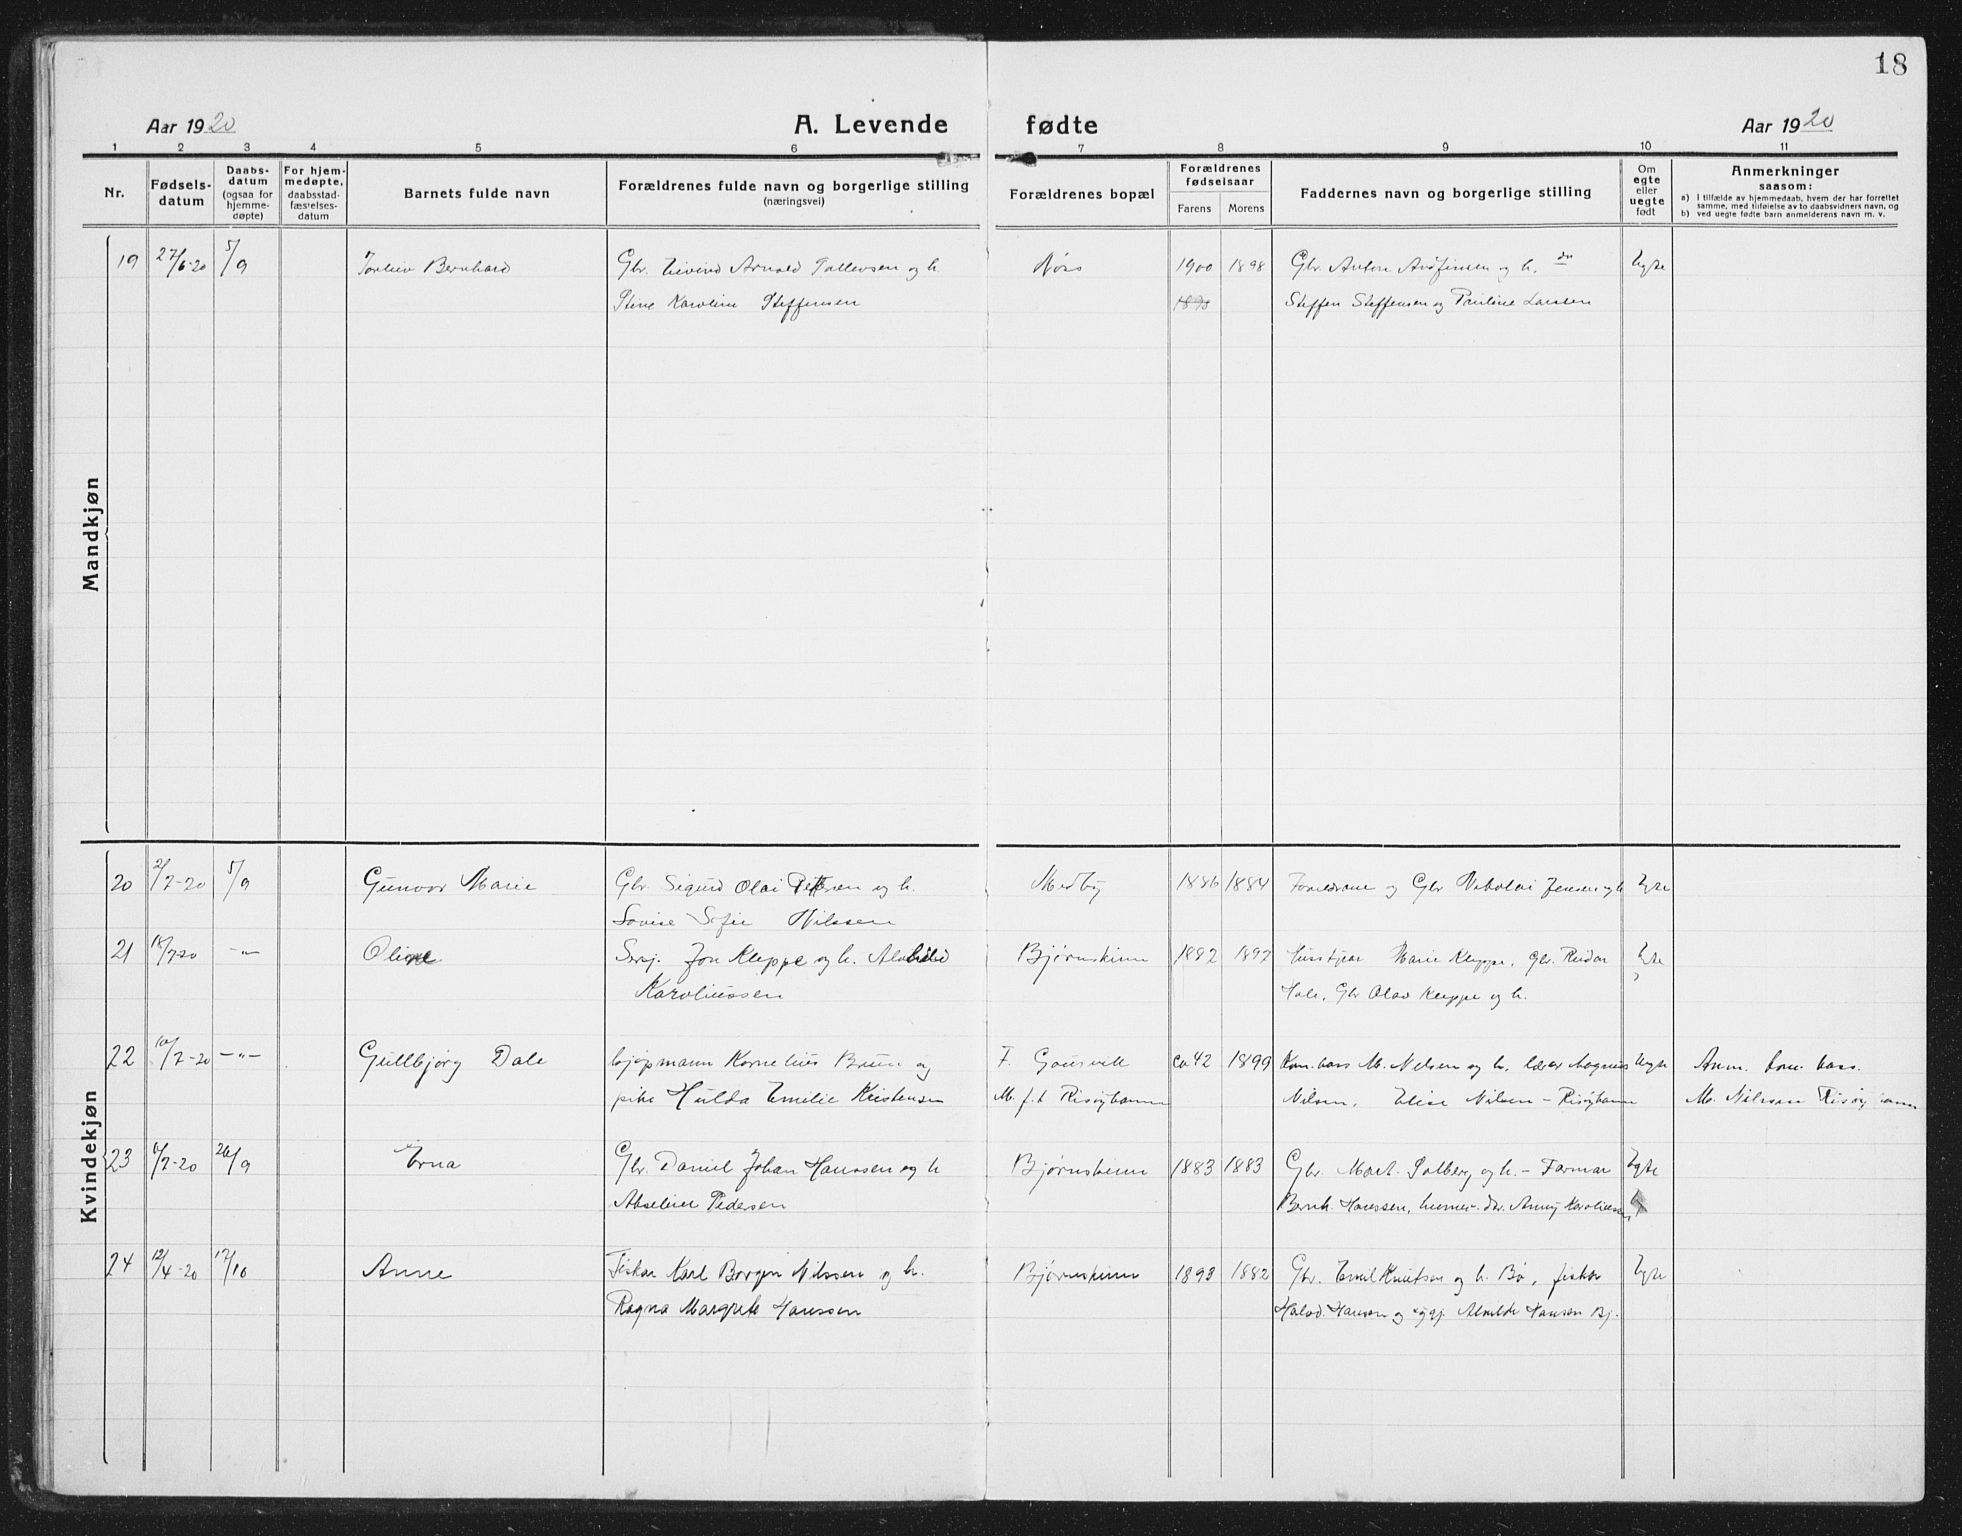 18
Aar 1920 A. Levende fødte Aar 1920
1 2 3 4 5 6 7 8 9 10 11
Nr. Fødselsdatum Daabsdatum (ogsaa for hjemmedøpte) For hjemmedøpte, daabsstadfæstelsesdatum Barnets fulde navn Forældrenes fulde navn og borgerlige stilling (næringsvei) Forældrenes bopæl Forældrenes fødselsaar Farens Morens Faddernes navn og borgerlige stilling Om egte eller uegte født Anmerkninger saasom:
a) I tilfælde av hjemmedaab, hvem der har forrettet samme, med tilføielse av to daabsvidners navn, og
b) ved uegte fødte barn anmelderens navn m. v.
Mandkjøn
19 27/6-20 5/9 Bernhard Gbr. Eivind Arnold Tollevsen og h. 1900 1898 Gbr. Anton Arnfinsen og h. Egte
Stine Karoline Steffensen 1898 Steffen Steffensen og Pauline Larsen
Kvindekjøn
20 2/7-20 5/9 Gunvor Marie Gbr Sigurd Olai Pettersen og h. Medby 1886 1884 Forældrene og Gbr Nikolai Jensen og h Egte
Lovise Sofie Nilssen
21 18/7 20 -"- Oline Jon Kleppe og h. Bjørnskinn 1882 1892 Marie Kleppe, Gbr. Reidar Egte
Karoliussen Gbr Olav Kleppe og h.
22 10/7-20 -"- Gullbjørg Dale kjøpmann Kornelius Bruun og F. Gausvik ca 42 1899 M. Nilsen og h. lærer Magnus Uegte Anm.
pike Hulda Emilie Kristensen M. f.t. Risøyhamn Nilsen, Elise Nilsen - Risøyhamn M. Nilssen Risøyhamn
23 6/7-20 26/9 Erna Gbr. Daniel Johan Hanssen og h Bjørnskinn 1883 1883 Gbr. Mart. Solberg og h. - Farmor Egte
Pedersen Bernh. Hanssen,
24 12/4-20 17/10 Anne Fisker Karl Borgen Nilssen og h. Bjørnskinn 1893 1882 Gbr. Emil Knutsen og h. Bø, fisker Egte
Ragna Margrete Hanssen Hansen og Alvilde Hansen Bj.